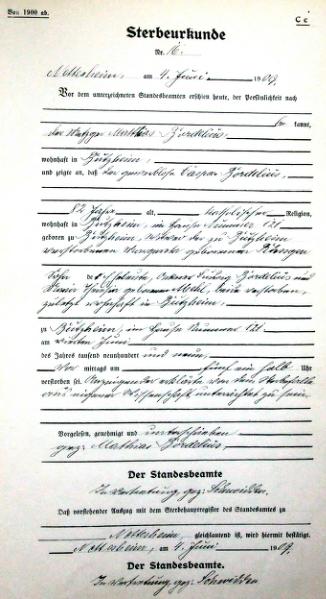 Von 1900 ab.
C c
Sterbeurkunde
Nr. 16.
Nettesheim, am 4. Juni 1909.
Vor dem unterzeichneten Standesbeamten erschien heute, der Persönlichkeit nach
be kannt,
der Metzger Mathias
wohnhaft in Bützheim,
und zeigte an, daß der gewerblose Caspar
82 Jahre alt, katholischer Religion,
wohnhaft in Bützheim, im Hause Nummer 121
geboren zu Bützheim, Witwer der zu Bützheim
verstorbenen Margareta geborenen
Sohn des
geborenen beide verstorben,
zuletzt wohnhaft in Bützheim.
zu Bützheim, im Hause Nummer 121.
am vierten Juni
des Jahres tausend neunhundert und neun,
Vor mittags um fünf ein halb Uhr
verstorben sei. Anzeigender erklärte von dem Sterbefalle
aus eigener Wissenschaft unterrichtet zu sein.
Vorgelesen, genehmigt und unterschrieben
gez: Mathias
Der Standesbeamte
In Vertretung, gez:
Daß vorstehender Auszug mit dem Sterbehauptregister des Standesamtes zu
Nettesheim, gleichlautend ist, wird hiermit bestätigt.
Nettesheim, am 4. Juni 1909.
Der Standesbeamte.
In Vertretung, gez: